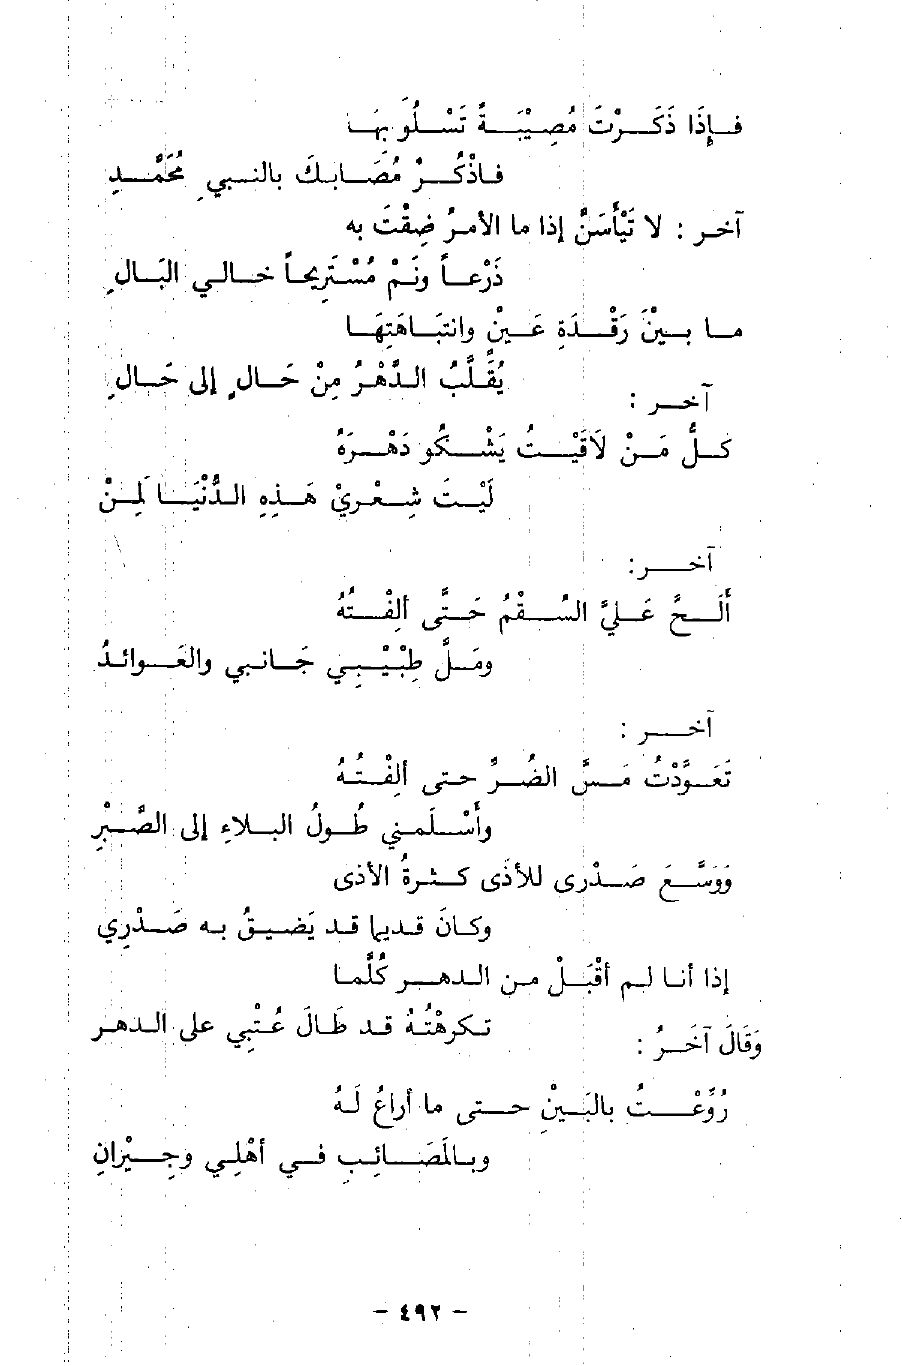 فإِذَا ذَكَرْتَ مُصِيْبَةً تَسْلُوَ بِهَا
فاذْكُرْ مُصَابكَ بالنبيِ مُحَمَّدِ
آخر : لا تَيْأَسَنَّ إذا ما الأمرُ ضِقْتَ به
ذَرْعاً ونَمْ مُسْتَرِيحاً خالي البَالِ
ما بينَْ رَقْدَةِ عَينٍْ وانتبَاهَتِهَا
يُقَلِّبُ الدَّهْرُ مِنْ حَالٍ إلى حَالِ
آخر :
كلُّ مَنْ لاَقَيْتُ يَشْكُو دَهْرَهُ
لَيْتَ شِعْرِيْ هَذِهِ الدُّنْيَا لِمَنْ
آخر:
أَلَحَّ عَليَّ السُقْمُ حَتَّى ألِفْتُهُ
ومَلَّ طِبْيْبِي جَانبي والعَوائدُ
آخر :
تَعَوَّدْتُ مَسَّ الضُرِّ حتى ألِفْتُهُ
وأَسْلَمني طُولُ البلاءِ إلى الصَّبْرِ
وَوَسَّعَ صَدْرِى للأذَى كثرةُ الأذى
وكانَ قديما قد يَضيقُ به صَدْرِي
إذا أنا لم أقْبَلْ من الدهر كُلَّما
تكرهْتُهُ قد طَالَ عُتْبِي على الدهر
وَقَالَ آخَرُ :
رُوِّعْتُ بالبَينِْ حتى ما أراعُ لَهُ
وبالمَصَائبِ في أهْلِي وجِيْرانِ
- ٤٩٢ -